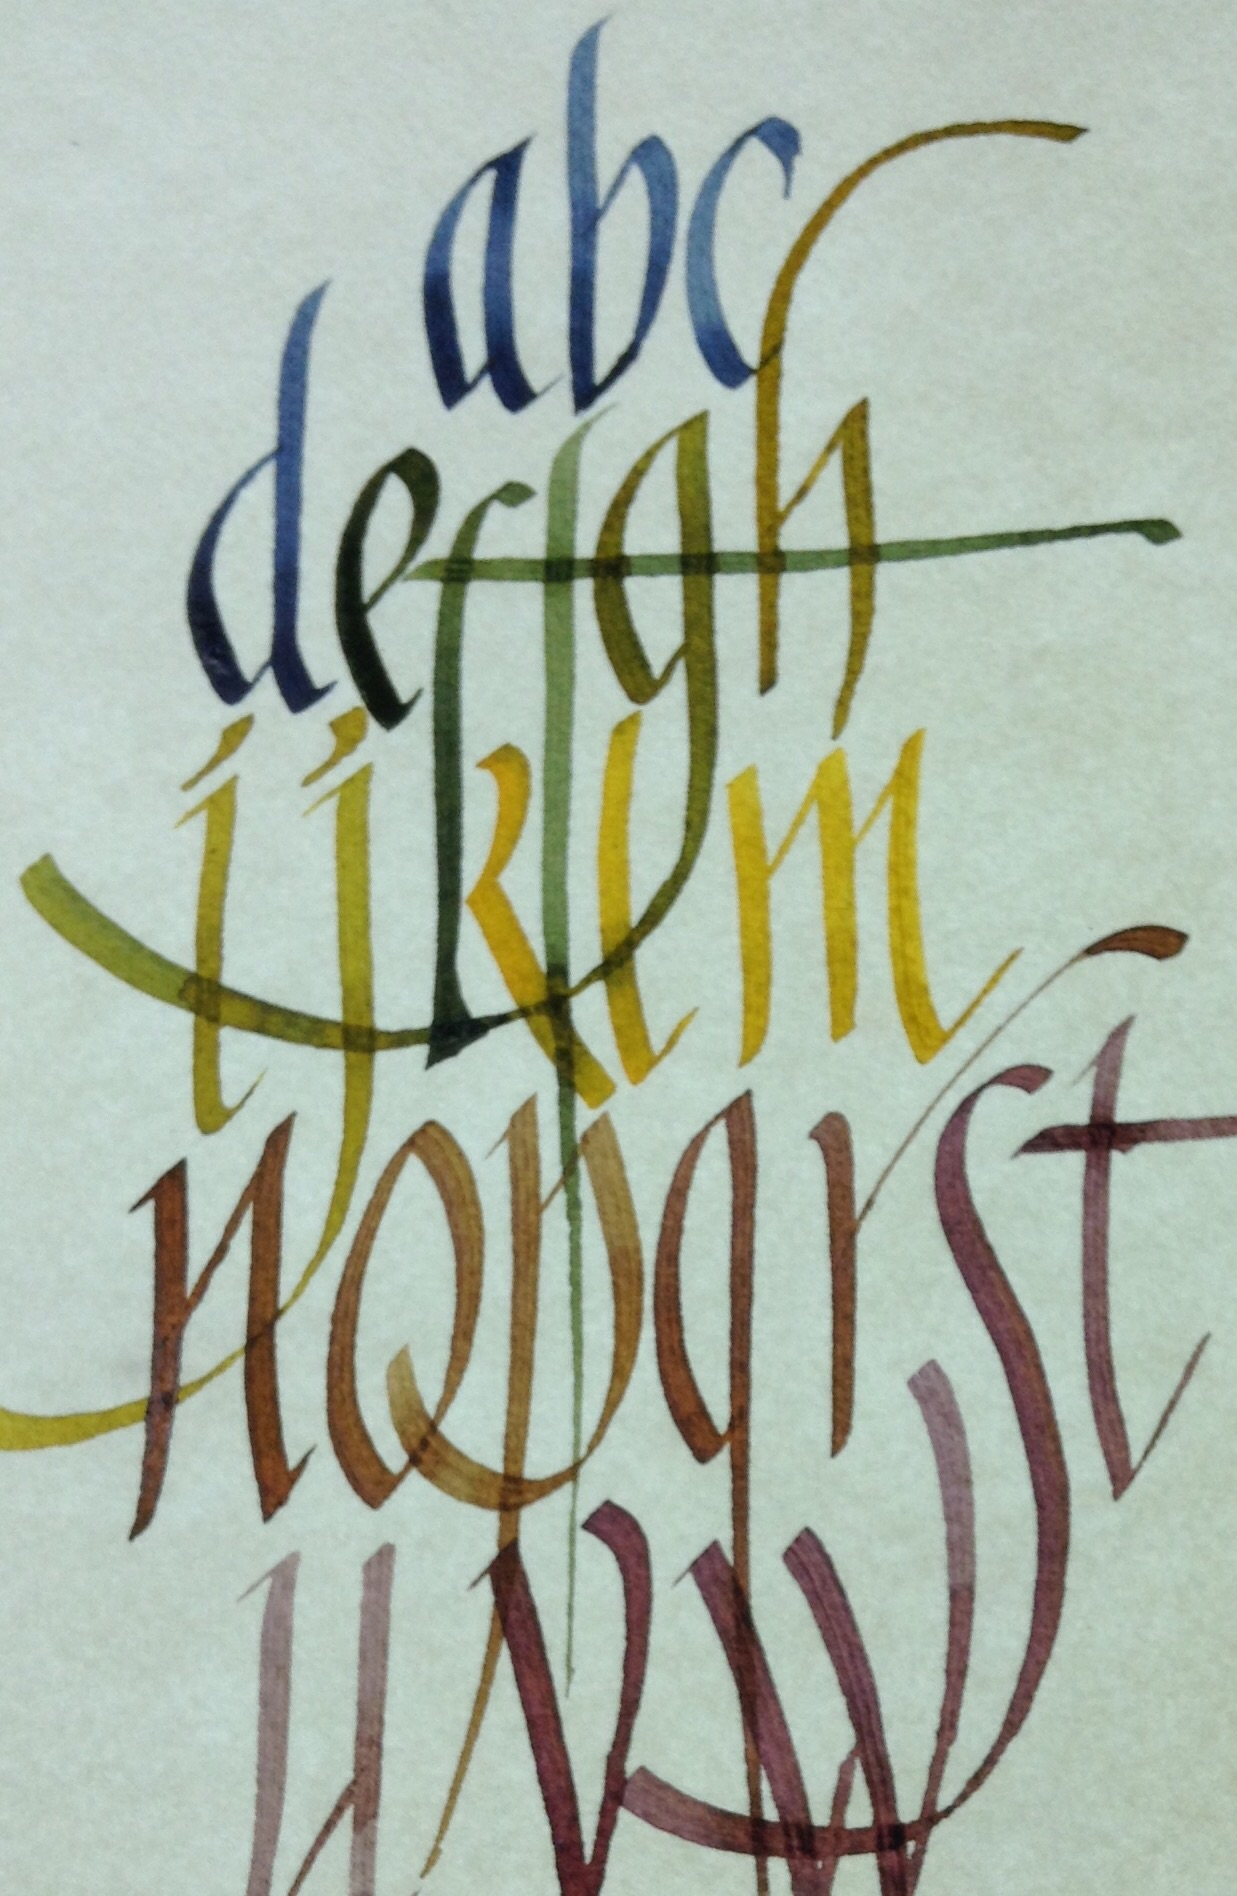 abc
defgh
ijklm
nopqrst
uvw